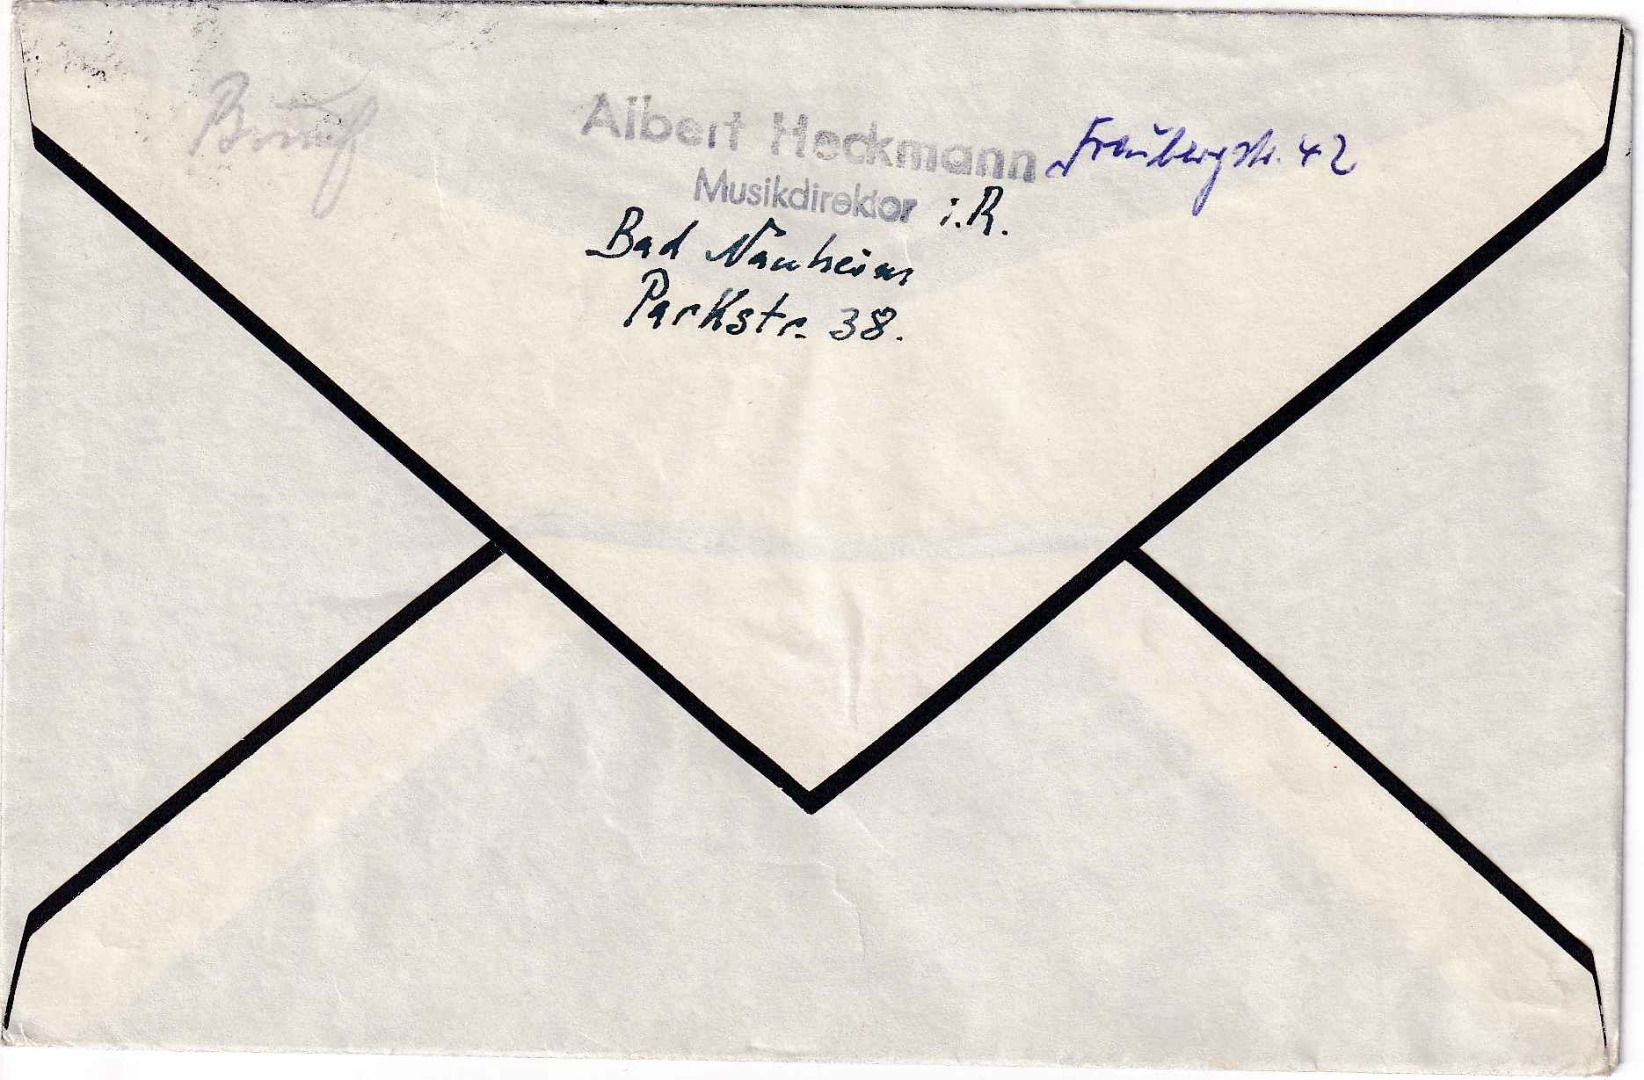 Albert Heckmann
Musikdirektor i.R.
Bad Nauheim
Parkstr. 38.
42